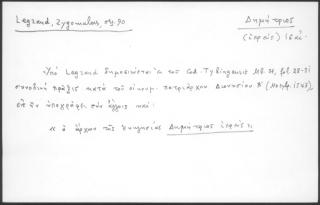 Legrand, Zygomalas, σς. 90
Δημήτριος
(ἱερεὺς) 16 αἰ.
Ὑπὸ Legrand δημοσιεύεται ἐκ τοῦ Cod. Tybingensis Mb. 37, fol. 28-31
συνοδικὴ πρᾶξις κατὰ τοῦ οἰκουμ. πατριάρχου Διονυσίου Β'
ἐν ᾗ ὑπογράφει σὺν ἄλλοις καὶ:
« ὁ ἄρχων τῆς ἐκκλησίας Δημήτριος ἱερεύς »